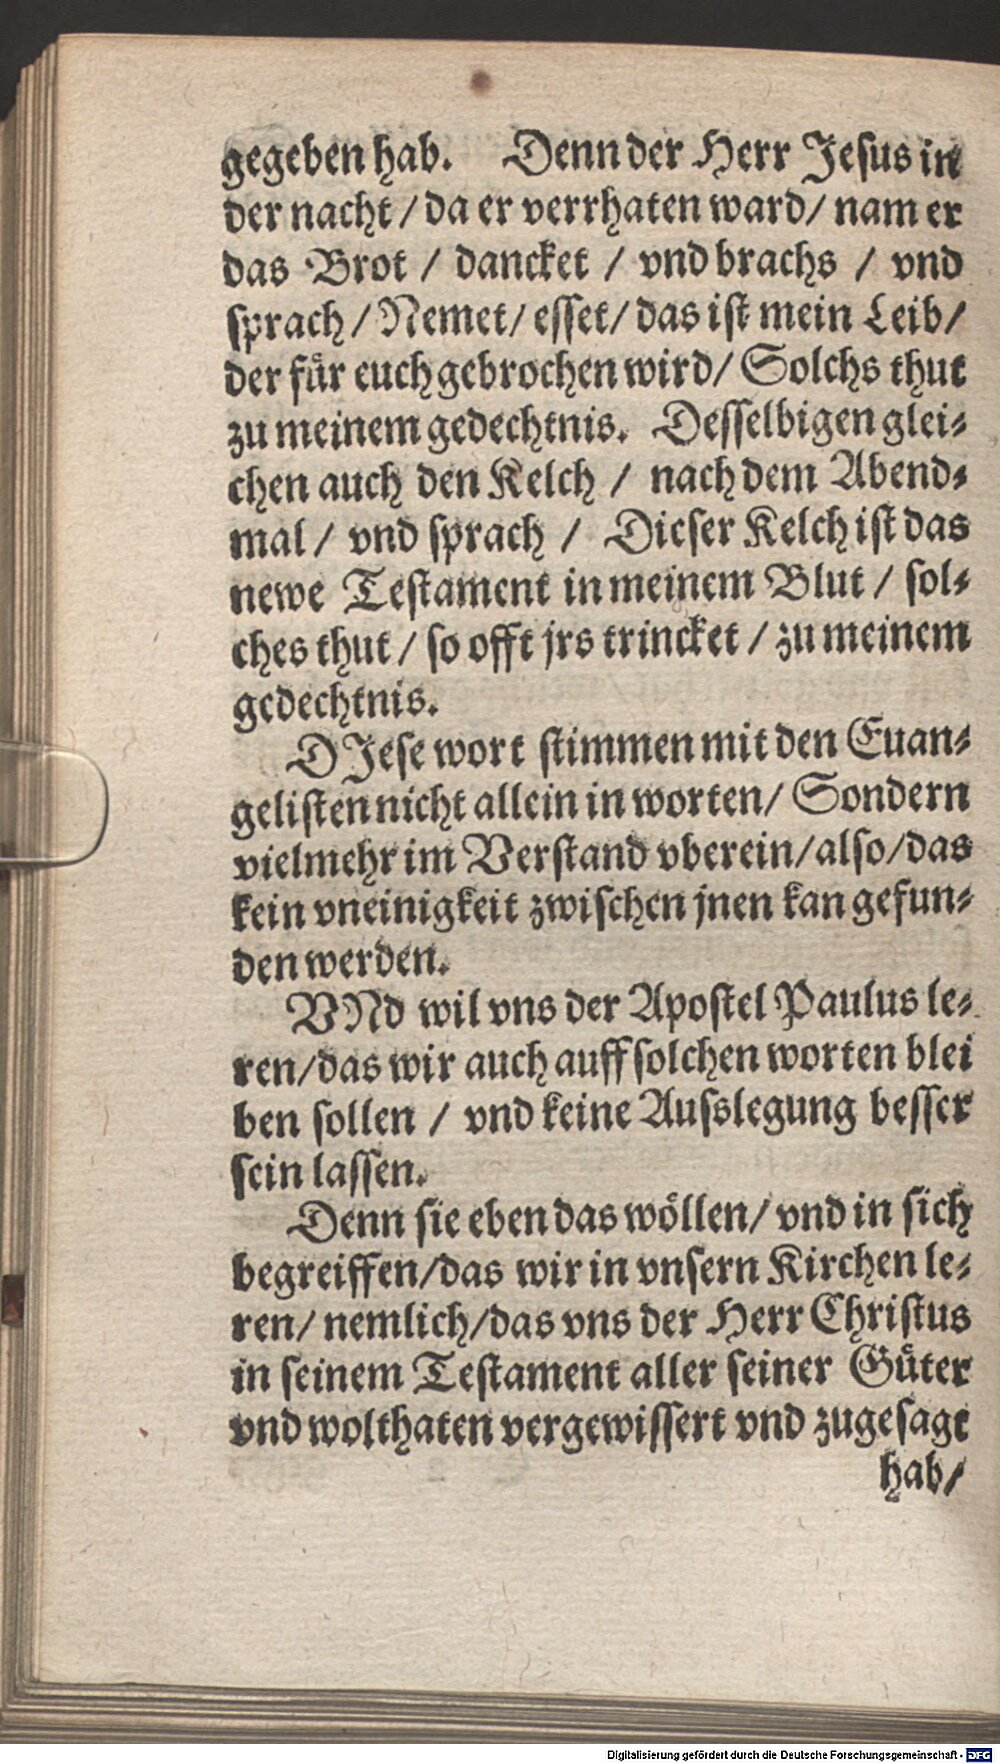 gegeben hab. Denn der Herr Jesus in
der nacht / da er verrhaten ward / nam er
das Brot / dancket / vnd brachs / vnd
sprach / Nemet / esset / das ist mein Leib /
der fuͤr euch gebrochen wird / Solchs thut
zu meinem gedechtnis. Desselbigen glei⸗
chen auch den Kelch / nach dem Abend⸗
mal / vnd sprach / Dieser Kelch ist das
newe Testament in meinem Blut / sol⸗
ches thut / so offt jrs trincket / zu meinem
gedechtnis.
DJese wort stimmen mit den Euan⸗
gelisten nicht allein in worten / Sondern
vielmehr im Verstand vberein / also / das
kein vneinigkeit zwischen jnen kan gefun⸗
den werden.
VNd wil vns der Apostel Paulus le⸗
ren / das wir auch auff solchen worten blei
ben sollen / vnd keine Ausslegung besser
sein lassen.
Denn sie eben das woͤllen / vnd in sich
begreiffen / das wir in vnsern Kirchen le⸗
ren / nemlich / das vns der Herr Christus
in seinem Testament aller seiner Guͤter
vnd wolthaten vergewissert vnd zugesagt
hab /
Digitalisierung gefördert durch die Deutsche Forschungsgemeinschaft - DFG